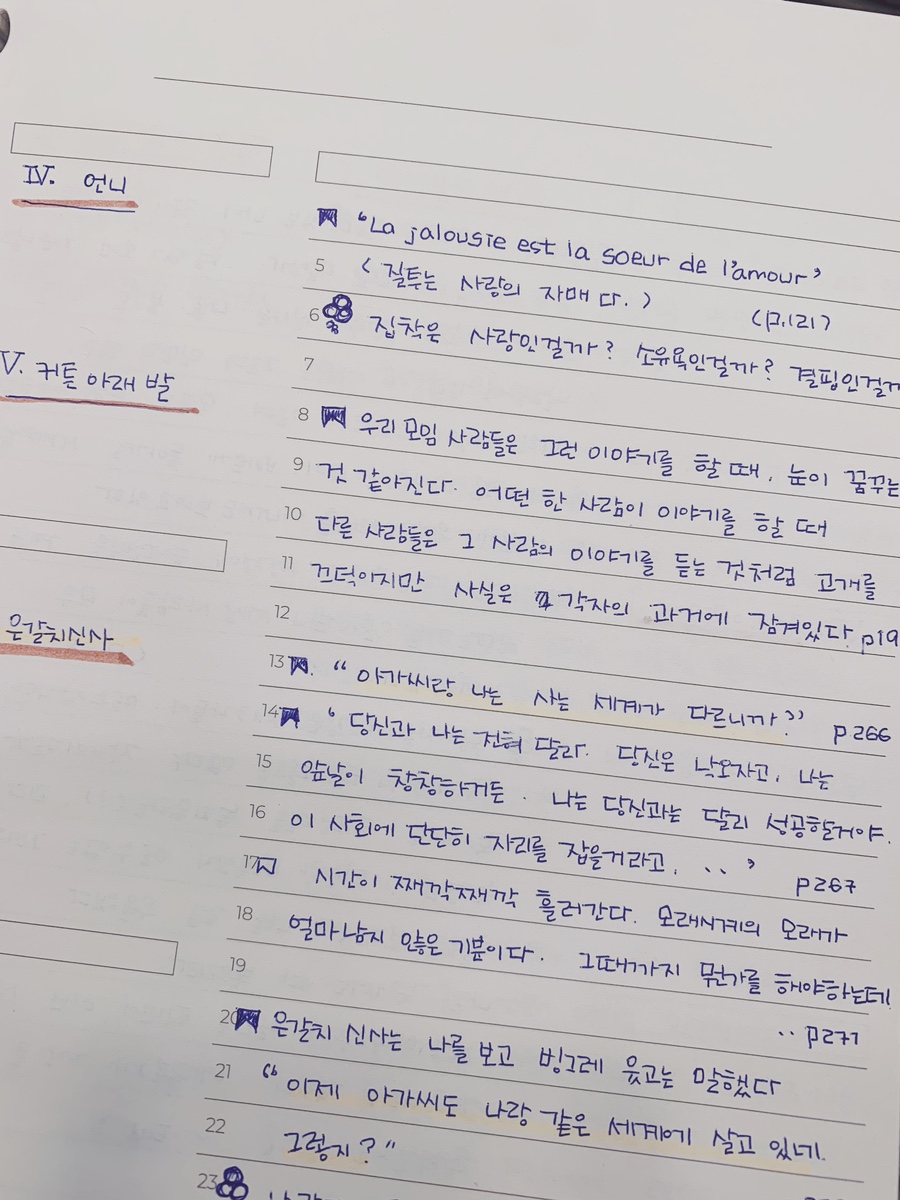 IV. 언니
"La jalousie est la soeur de l'amour"
5 <질투는 사랑의 자매다.>
(p.121)
6 집착은 사랑인걸까? 소유욕인걸까? 결핍인걸까
7
V. 커튼 아래 발
8 우리 모임 사람들은 그런 이야기를 할 때, 눈이 꿈꾸는
9 것 같아진다. 어떤 한 사람이 이야기를 할 때
10 다른 사람들은 그 사람의 이야기를 듣는 것처럼 고개를
11 끄덕이지만 사실은 각자의 과거에 잠겨있다. p19
12
은갈치신사
13 "아가씨랑 나는 사는 세계가 다르니까" p266
14 '당신과 나는 전혀 달라. 당신은 낙오자고, 나는
15 앞날이 창창하거든. 나는 당신과는 달리 성공할거야.
16 이 사회에 단단히 자리를 잡을거라고, ..' p267
17 시간이 째깍째깍 흘러간다. 모래시계의 모래가
18 얼마남지 않은 기분이다. 그때까지 뭔가를 해야하는데
19 ..p271
20 은갈치 신사는 나를 보고 빙그레 웃고는 말했다
21 "이제 아가씨도 나랑 같은 세계에 살고 있네.
22 그렇지?"
23